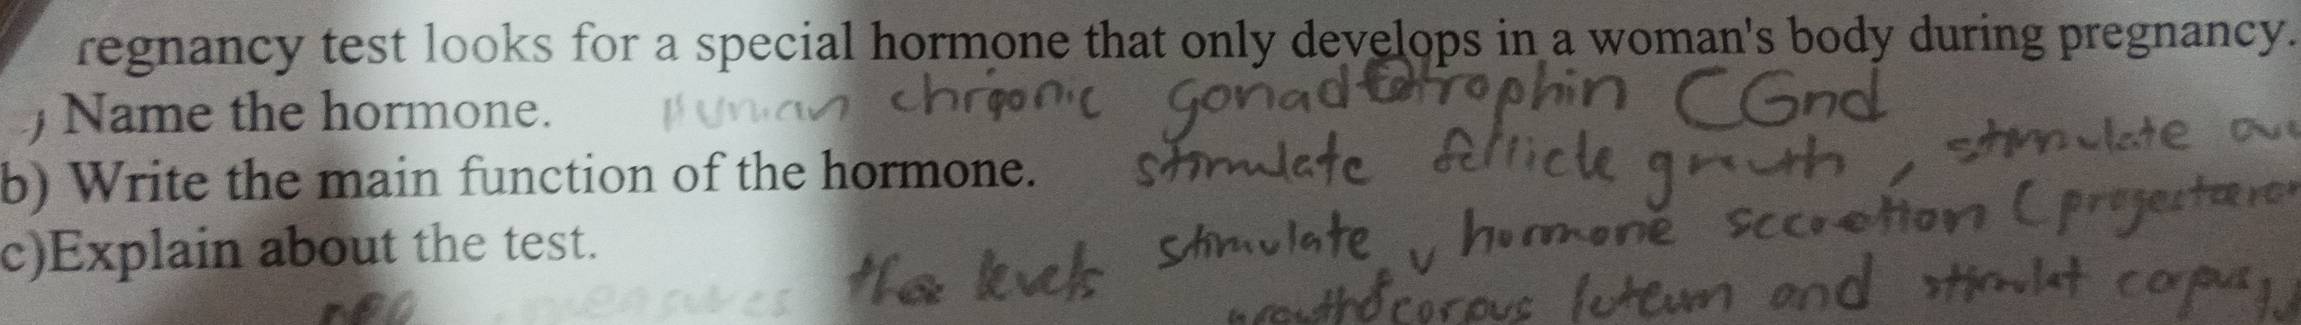 regnancy test looks for a special hormone that only develops in a woman's body during pregnancy.
Name the hormone. Human chrionic gonadtotrophin
b) Write the main function of the hormone. stimulate follicle growth, stimulate
stimulate hormone secretion (
c)Explain about the test.
the levels
measures
corpus luteum and stimulat corpus